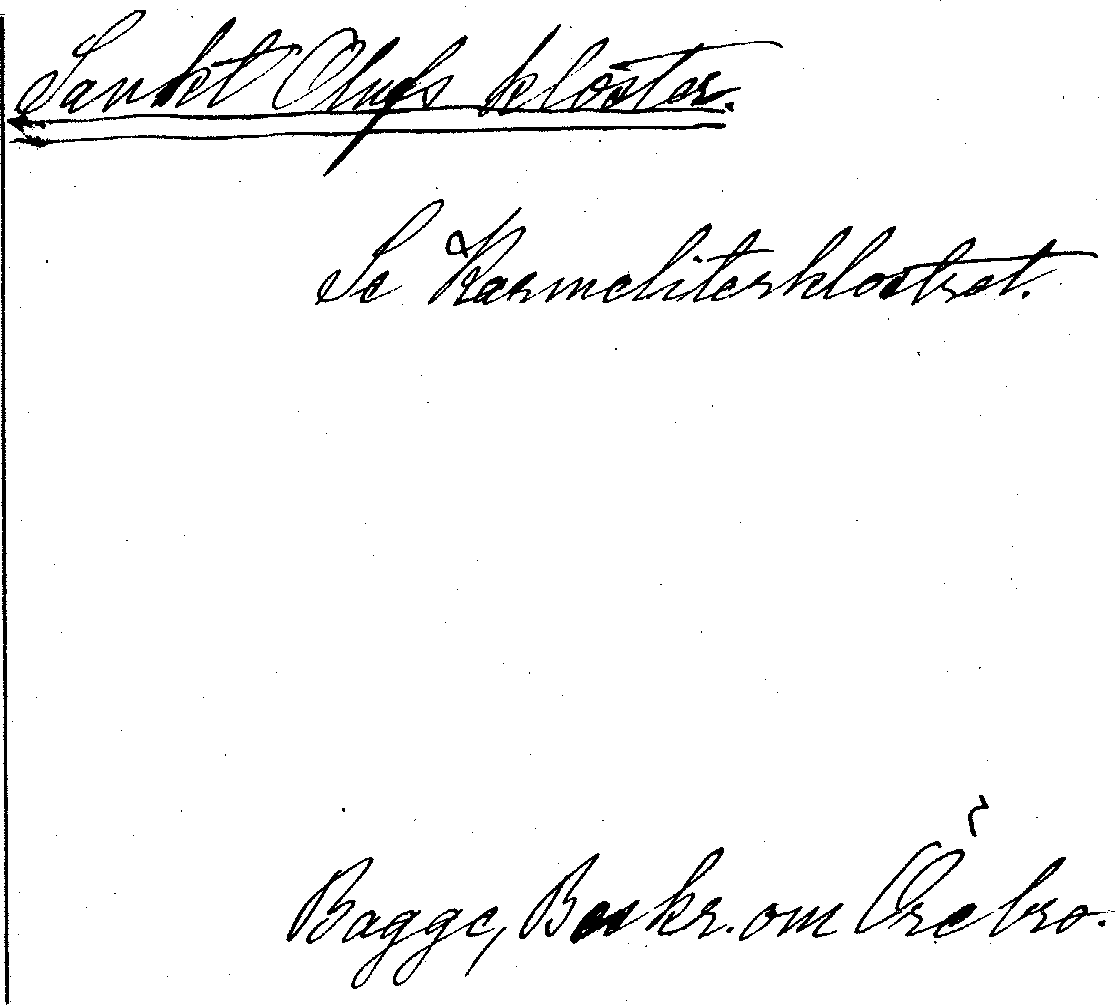 Sankt Olufs kloster.
Se Karmeliterklostret.
Bagge, Beskr. om Örebro.